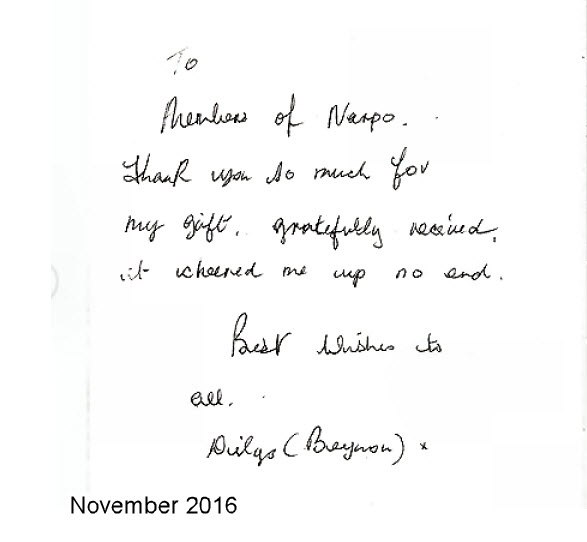 To
Members of Narpo.
Thank you so much for
my gift. gratefully received.
it cheered me up no end.
Best Wishes to
all.
Dilys (Beynon) x
November 2016